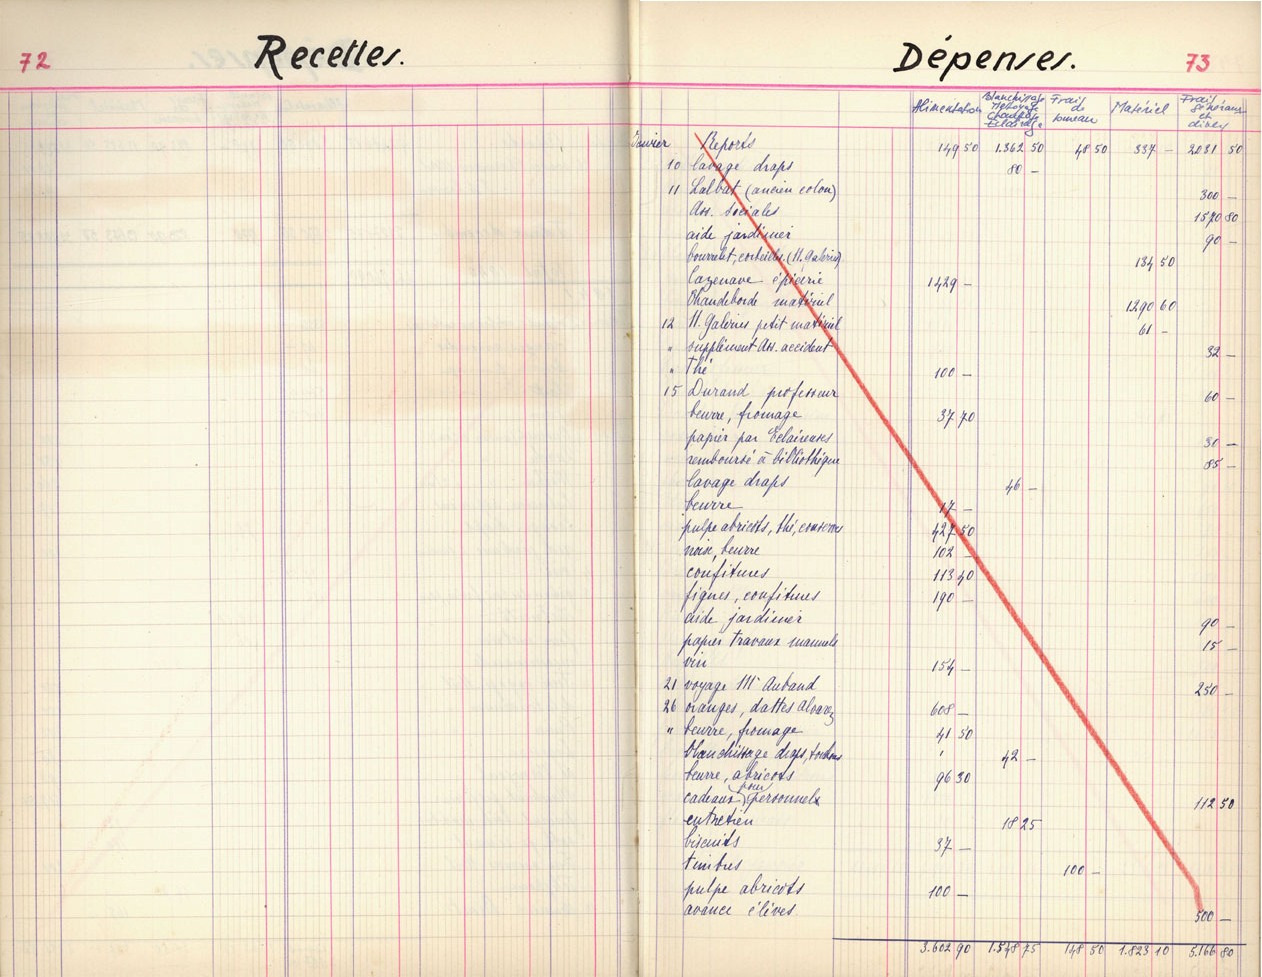 72
Recettes.
Dépenses.
73
Alimentation
Blanchissage Nettoyage Chauffage Eclairage
Frais de bureau
Matériel
Frais généraux et divers
Janvier Reports 149 50 1.362 50 48 50 337 – 2031 50
10 lavage draps 80 –
11 Lalbat (ancien colon) 300 –
Ass. sociales 1570 80
aide jardinier 90 –
bourrelet, corbeilles (N. Galeries) 134 50
Cazenave épicerie 1429 –
Chaudeborde matériel 1290 60
12 N. Galeries petit matériel 61 –
" supplément Ass. accident 32 –
" Thé 100 –
15 Durand professeur 60 –
beurre, fromage 37 70
papier par Eclaireuses 30 –
remboursé à bibliothèque 85 –
lavage draps 46 –
beurre 17 –
pulpe abricots, thé, conserves 427 50
noix, beurre 102 –
confitures 113 40
figues, confitures 190 –
aide jardinier 90 –
papier travaux manuels 15 –
vin 154 –
21 voyage Mr Auband 250 –
26 oranges, dattes Alvarez 608 –
" beurre, fromage 41 50
blanchissage draps, torchons 42 –
beurre, abricots 96 30
cadeaux pour personnels 112 50
entretien 18 25
biscuits 37 –
timbres 100 –
pulpe abricots 100 –
avance élèves 500 –
3.602 90 1.548 75 148 50 1.823 10 5.166 80